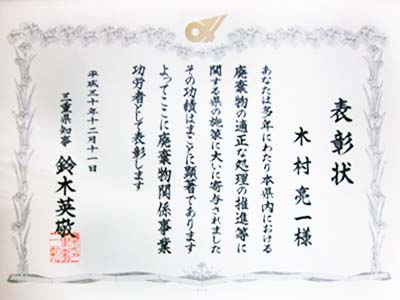 表彰状
木村亮一様
あなたは多年にわたり本県内における
廃棄物の適正な処理の推進等に
関する県の施策に大いに寄与されました
その功績はまことに顕著であります
よってここに廃棄物関係事業
功労者として表彰します
平成三十年十二月十一日
三重県知事 鈴木英敬